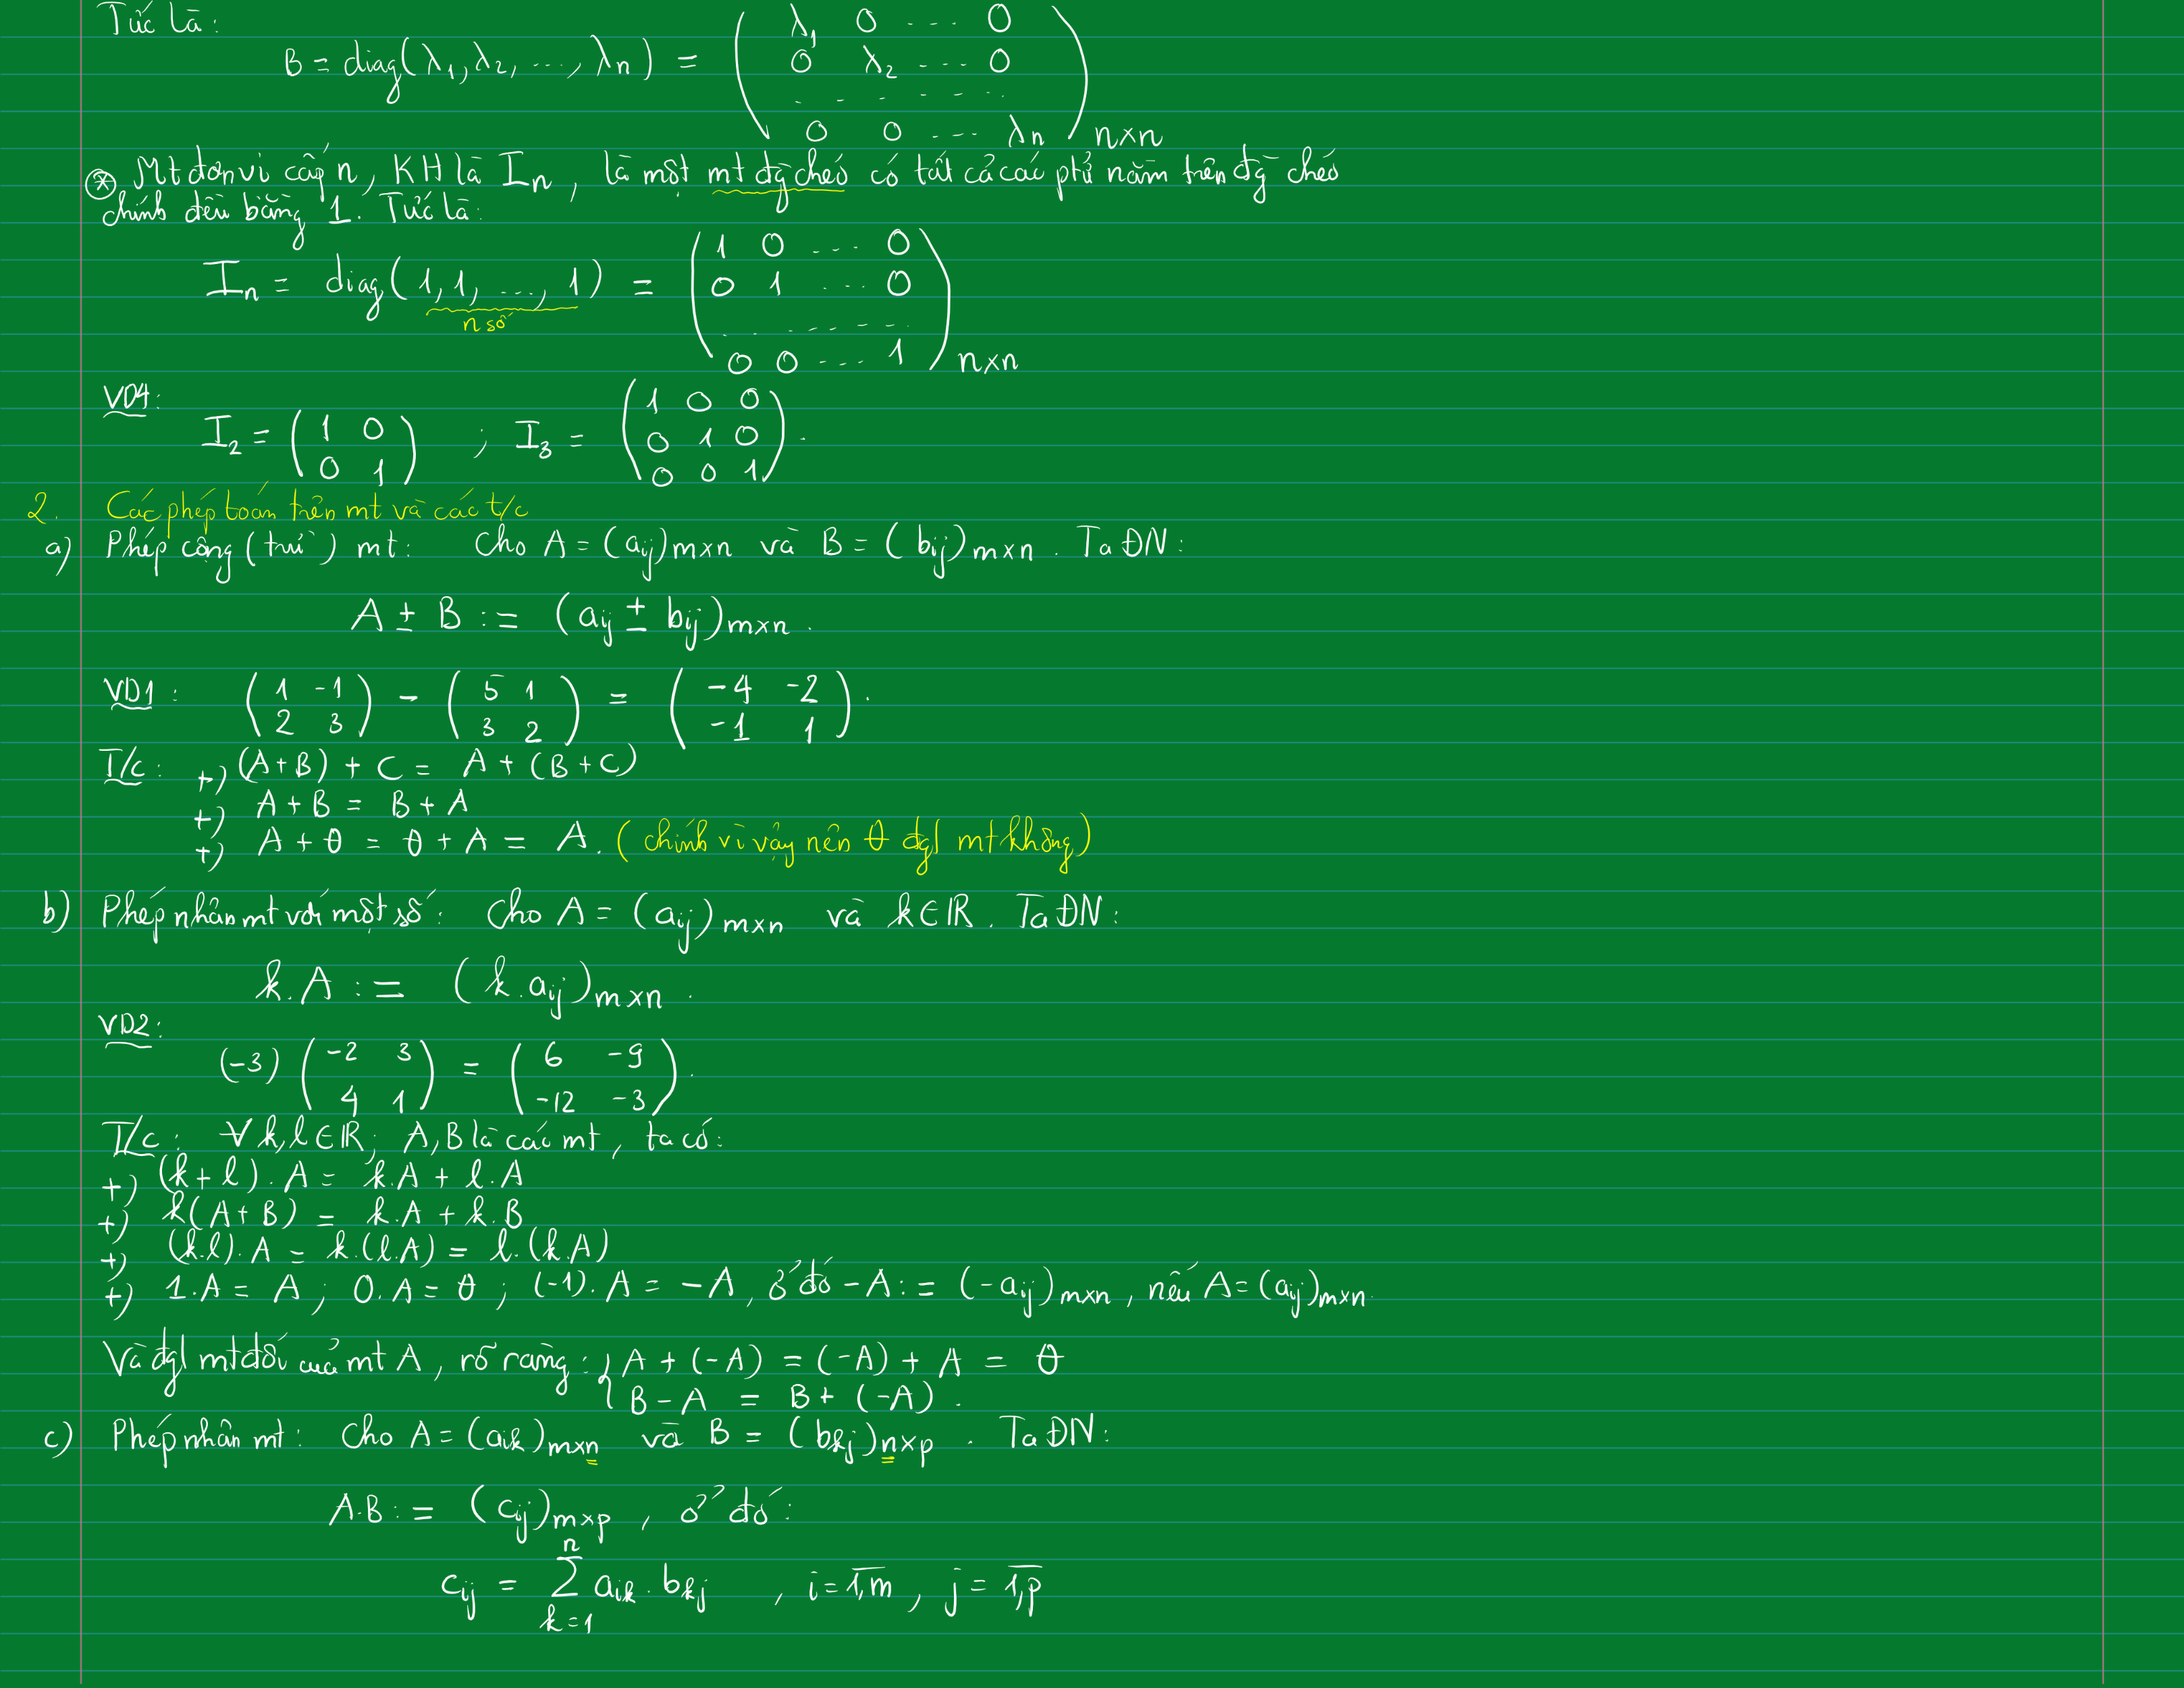 Tức là:
B = diag(λ₁, λ₂, ..., λn) = (λ₁ 0 ... 0
0 λ₂ ... 0
. . . . . . .
0 0 ... λn)n×n
⊛ Mt đơn vị cấp n, KH là In, là một mt đg chéo có tất cả các ptử nằm trên đg chéo
chính đều bằng 1. Tức là:
In = diag(1, 1, ..., 1) = (1 0 ... 0
0 1 ... 0
n số
. . . . . . .
0 0 ... 1)n×n
VD4:
I₂ = (1 0
0 1) ; I₃ = (1 0 0
0 1 0
0 0 1).
2. Các phép toán trên mt và các t/c
a) Phép cộng (trừ) mt: Cho A = (aij)m×n và B = (bij)m×n. Ta ĐN:
A ± B := (aij ± bij)m×n.
VD1: (1 -1
2 3) - (5 1
3 2) = (-4 -2
-1 1).
T/c: +) (A+B) + C = A + (B+C)
+) A + B = B + A
+) A + θ = θ + A = A. (chính vì vậy nên θ đgl mt không)
b) Phép nhân mt với một số: Cho A = (aij)m×n và k∈ℝ. Ta ĐN:
k.A := (k.aij)m×n.
VD2:
(-3) (-2 3
4 1) = (6 -9
-12 -3).
T/c: ∀k,l∈ℝ; A,B là các mt, ta có:
+) (k+l).A = k.A + l.A
+) k(A+B) = k.A + k.B
+) (k.l).A = k.(l.A) = l.(k.A)
+) 1.A = A ; 0.A = θ ; (-1).A = -A, ở đó -A := (-aij)m×n, nếu A = (aij)m×n.
Và đgl mt đối của mt A, rõ ràng: { A + (-A) = (-A) + A = θ
B - A = B + (-A).
c) Phép nhân mt: Cho A = (aik)m×n và B = (bkj)n×p. Ta ĐN:
A.B := (cij)m×p, ở đó:
cij = ∑ₖ₌₁ⁿ aik.bkj , i = 1,m , j = 1,p